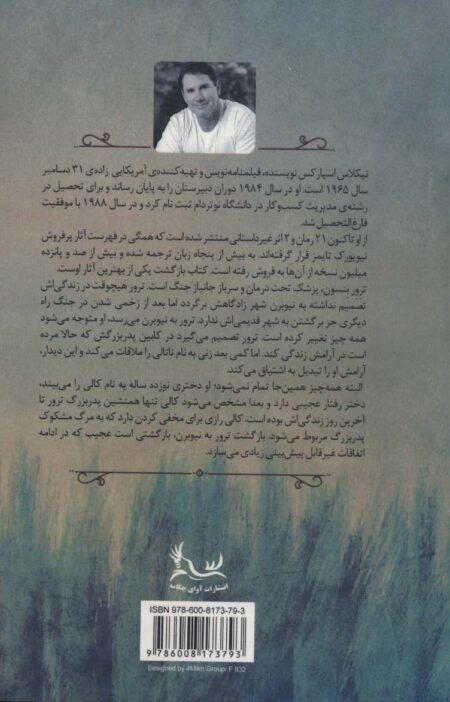 نیکلاس اسپارکس نویسنده، فیلمنامه‌نویس و تهیه‌کننده‌ی آمریکایی زاده‌ی ۳۱ دسامبر
سال ۱۹۶۵ است. او در سال ۱۹۸۴ دوران دبیرستان را به پایان رساند و برای تحصیل در
رشته‌ی مدیریت کسب‌وکار در دانشگاه نوتردام ثبت نام کرد و در سال ۱۹۸۸ با موفقیت
فارغ‌التحصیل شد.
از او تاکنون ۲۱ رمان و ۲ اثر غیرداستانی منتشر شده است که همگی در فهرست آثار پرفروش
نیویورک تایمز قرار گرفته‌اند. به بیش از پنجاه زبان ترجمه شده و بیش از صد و پانزده
میلیون نسخه از آن‌ها به فروش رفته است. کتاب بازگشت یکی از بهترین آثار اوست.
ترور بنسون، پزشک تحت درمان و سرباز جانباز جنگ است. ترور هیچوقت در زندگی‌اش
تصمیم نداشته به نیوبرن شهر زادگاهش برگردد اما بعد از زخمی شدن در جنگ راه
دیگری جز برگشتن به شهر قدیمی‌اش ندارد. ترور به نیوبرن می‌رسد، او متوجه می‌شود
همه چیز تغییر کرده است. ترور تصمیم می‌گیرد در کابین پدربزرگش که حالا مرده
است در آرامش زندگی کند. اما کمی بعد زنی به نام ناتالی را ملاقات می‌کند و این دیدار،
آرامش او را تبدیل به اشتیاق می‌کند.
البته همه‌چیز همین‌جا تمام نمی‌شود؛ او دختری نوزده ساله به نام کالی را می‌بیند،
دختر رفتار عجیبی دارد و بعدا مشخص می‌شود کالی تنها همنشین پدربزرگ ترور تا
آخرین روز زندگی‌اش بوده است. کالی رازی برای مخفی کردن دارد که به مرگ مشکوک
پدربزرگ مربوط می‌شود. بازگشت ترور به نیوبرن، بازگشتی است عجیب که در ادامه
اتفاقات غیرقابل پیش‌بینی زیادی می‌سازد.
انتشارات آوای چکامه
ISBN 978-600-8173-79-3
9 786008 173793
Designed by 4Mikh Group: F 832